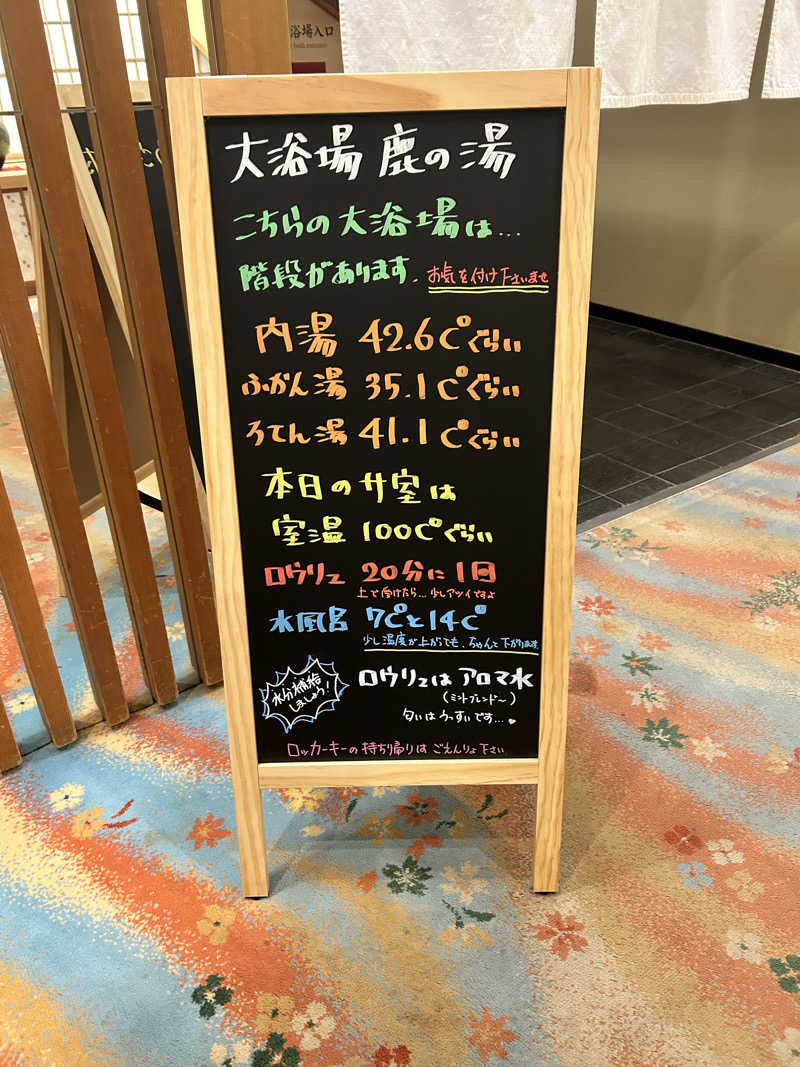 浴場入口
大浴場 鹿の湯
こちらの大浴場は...
階段があります。お気を付け下さいませ
内湯 42.6℃ぐらい
ふかん湯 35.1℃ぐらい
ろてん湯 41.1℃ぐらい
本日のサ室は
室温 100℃ぐらい
ロウリュ 20分に1回
上で向けたら...少しアツイですよ
水風呂 7℃と14℃
少し温度が上がっても、ちゃんと下がります
水分補給
しましょう!
ロウリュはアロマ水
(ミントブレンド〜)
匂いはうっすいです...
ロッカーキーの持ち帰りはごえんりょ下さい